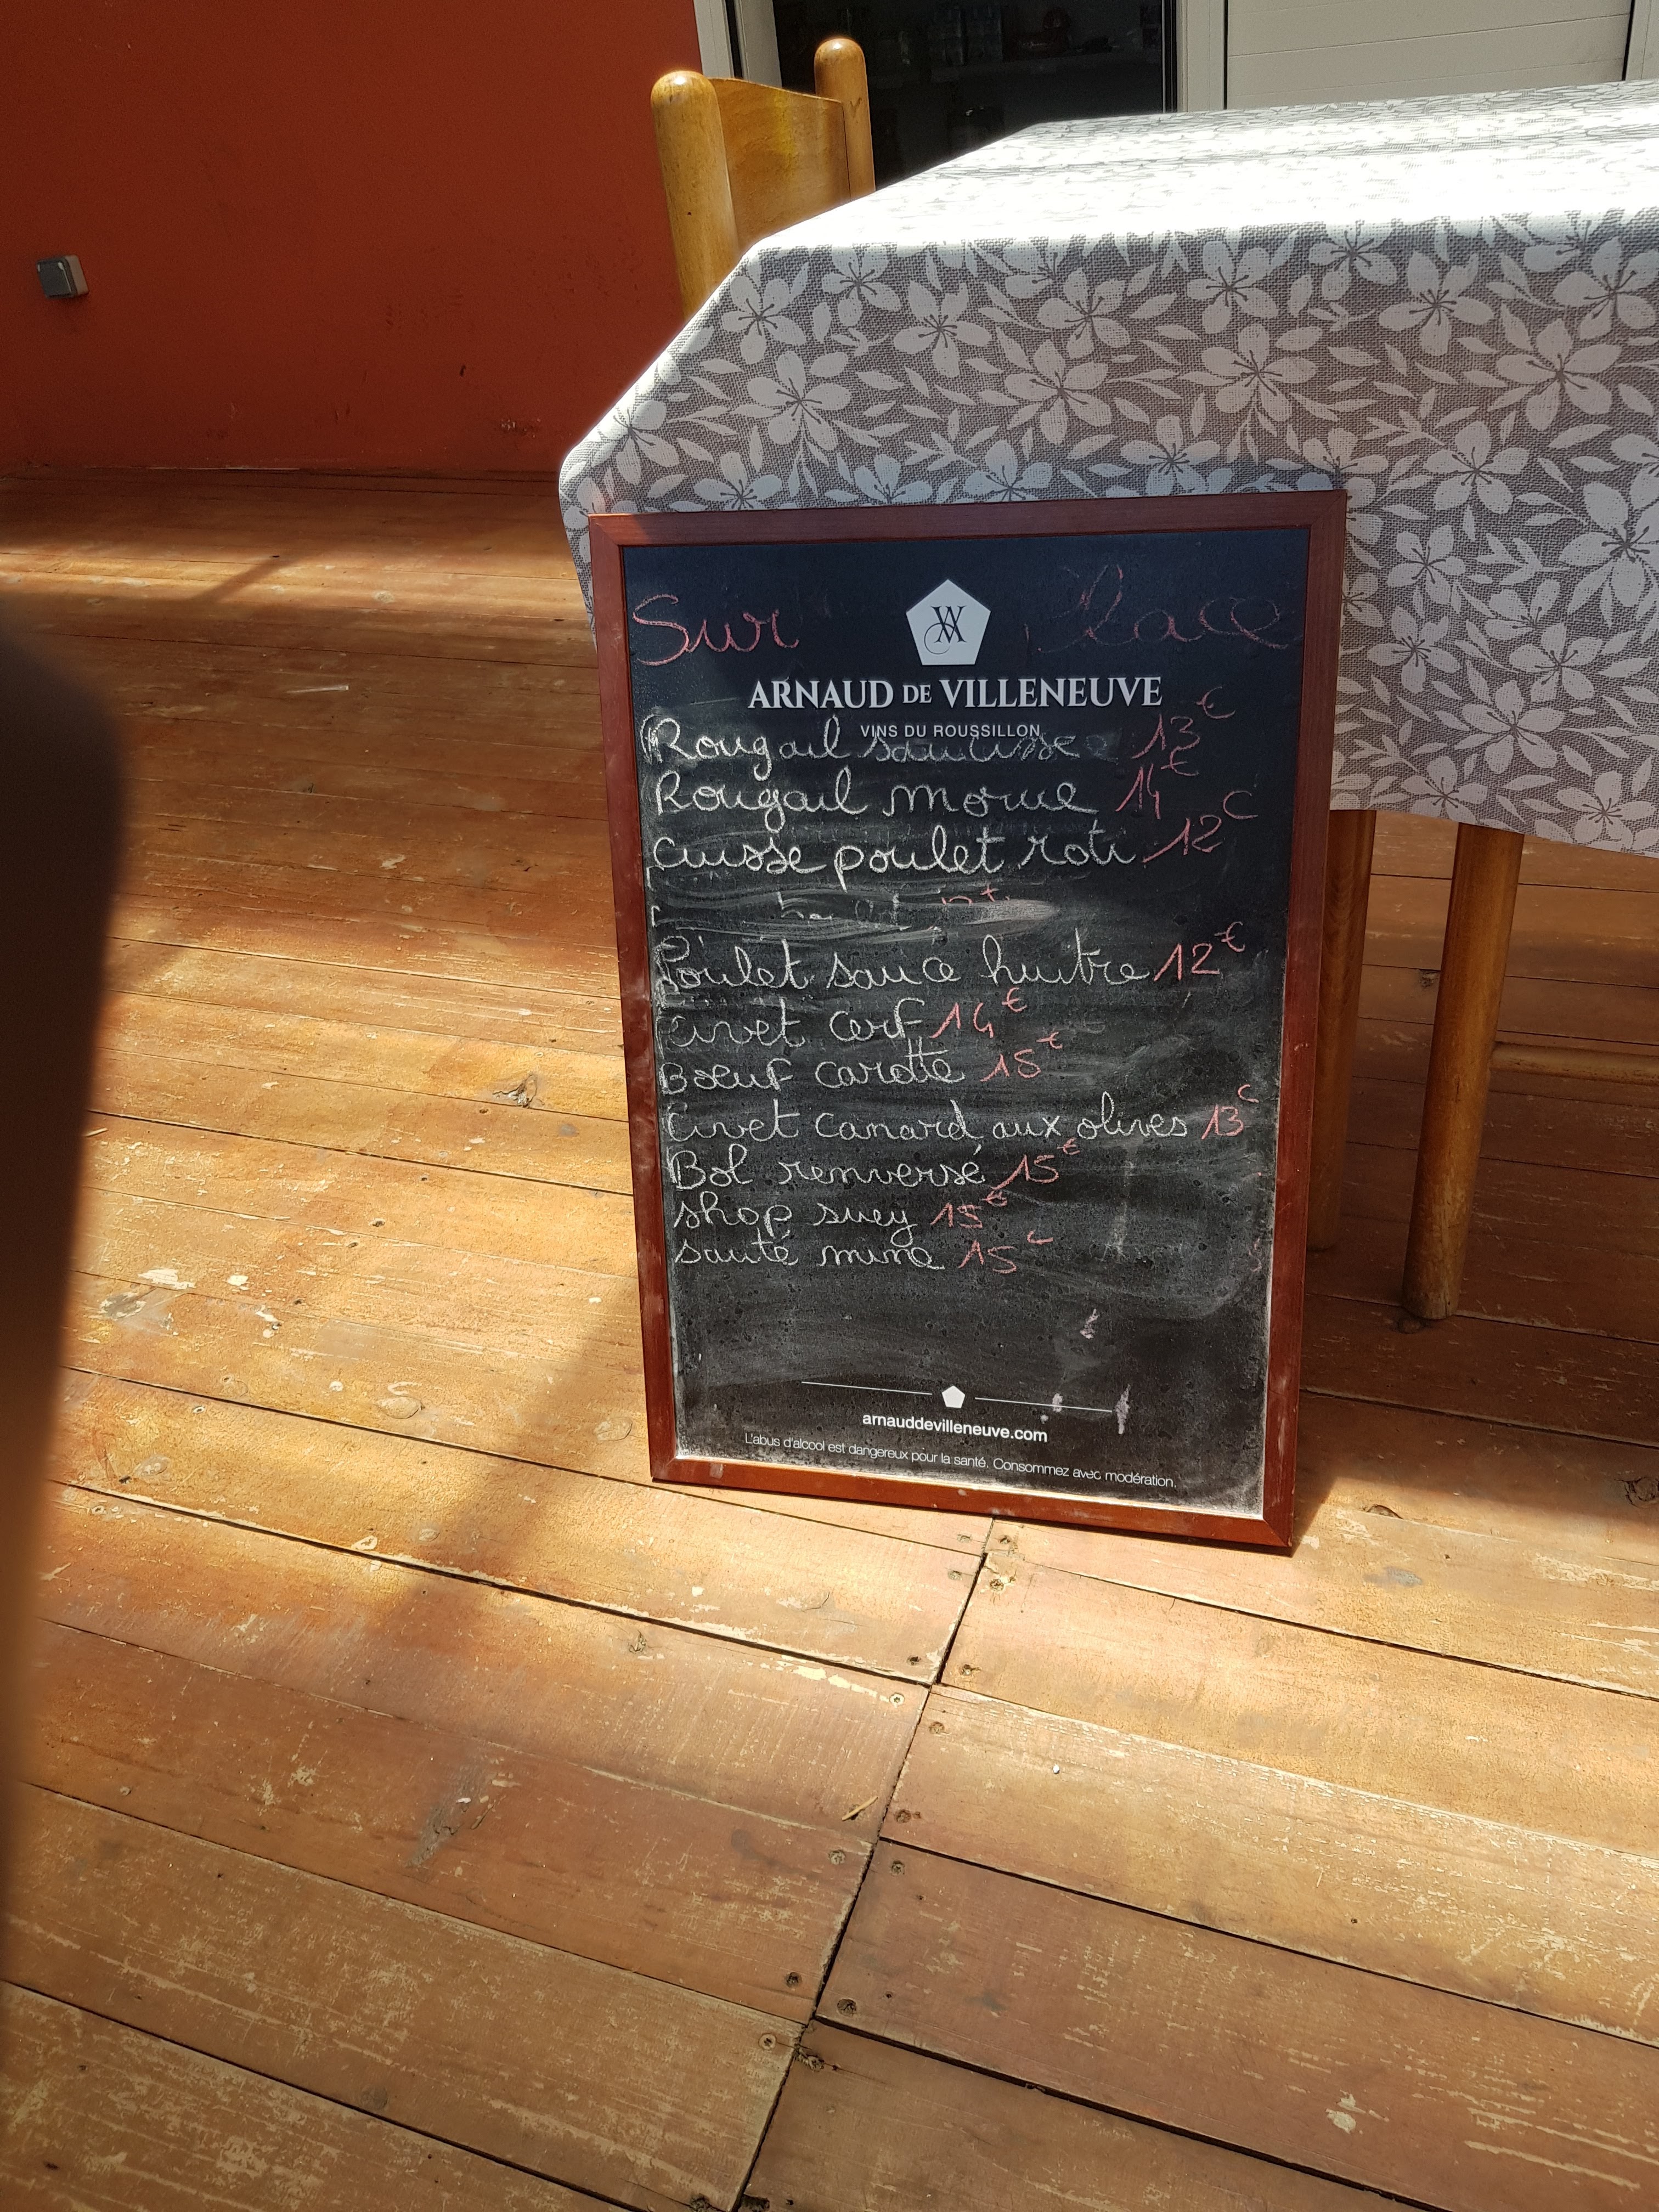 Sur Place
ARNAUD DE VILLENEUVE
VINS DU ROUSSILLON
Rougail saucisse 13€
Rougail morue 14€
cuisse poulet roti 12€
Poulet sauce huitre 12€
Civet cerf 14€
Boeuf carotte 15€
Civet canard aux olives 13€
Bol renversé 15€
shop suey 15€
sauté mine 15€
arnauddevilleneuve.com
L'abus d'alcool est dangereux pour la santé. Consommez avec modération.